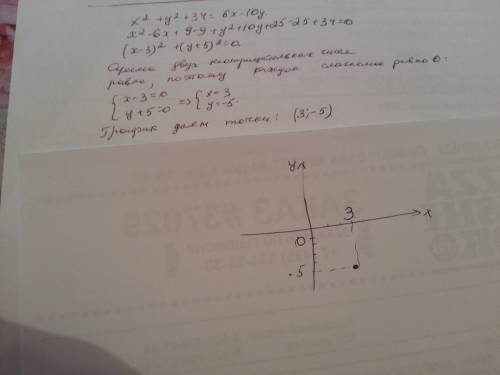 x² + y² + 34 = 6x - 10y.
x² - 6x + 9 - 9 + y² + 10y + 25 - 25 + 34 = 0
(x-3)² + (y+5)² = 0.
Сумма двух неотрицательных чисел
равна, поэтому каждое слагаемое равно 0:
{ x-3=0 => { x=3
{ y+5=0 { y=-5.
График даем точки: (3;-5)
y
3
x
0
-5
ЗАКАЗ #37029